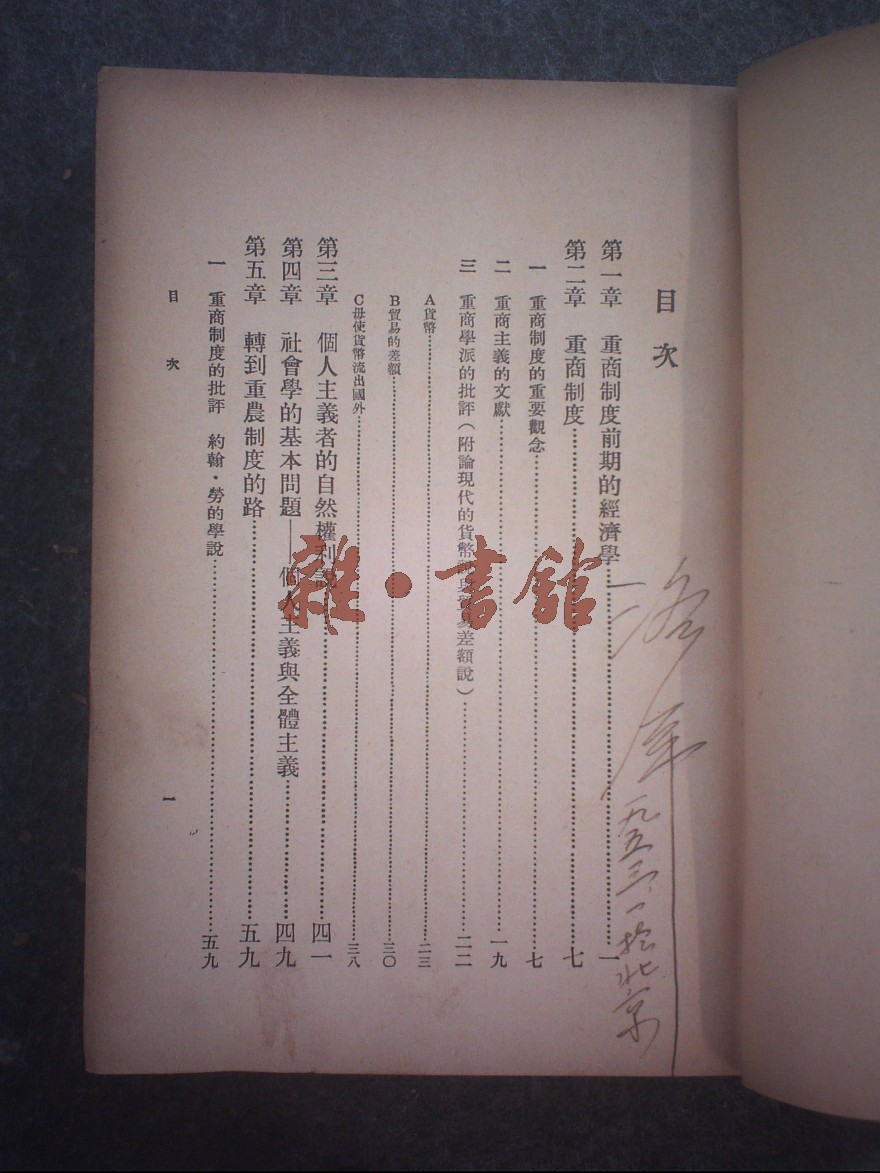 目次
第一章 重商制度前期的經濟學……一
第二章 重商制度……七
一 重商制度的重要觀念……七
二 重商主義的文獻……一九
三 重商學派的批評（附論現代的貨幣說與貿易差額說）……二二
A 貨幣……二三
B 貿易的差額……三〇
C 毋使貨幣流出國外……三八
第三章 個人主義者的自然權利說……四一
第四章 社會學的基本問題——個人主義與全體主義……四九
第五章 轉到重農制度的路……五九
一 重商制度的批評 約翰·勞的學說……五九
目次
一
一九五三、一於北京
雜·書館